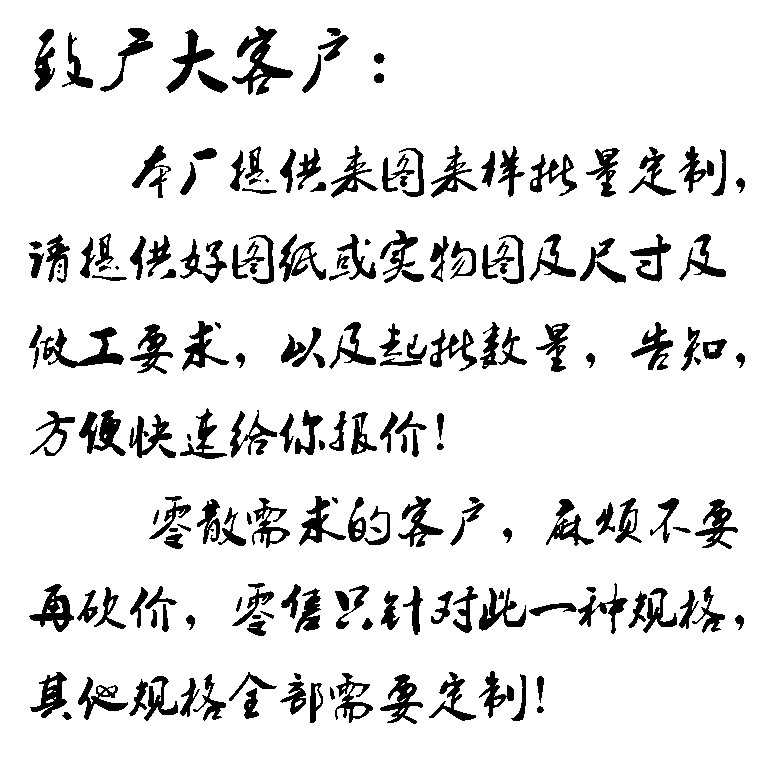 致广大客户：
本厂提供来图来样批量定制，
请提供好图纸或实物图及尺寸及
做工要求，以及起批数量，告知，
方便快速给你报价！
零散需求的客户，麻烦不要
再砍价，零售只针对此一种规格，
其他规格全部需要定制！